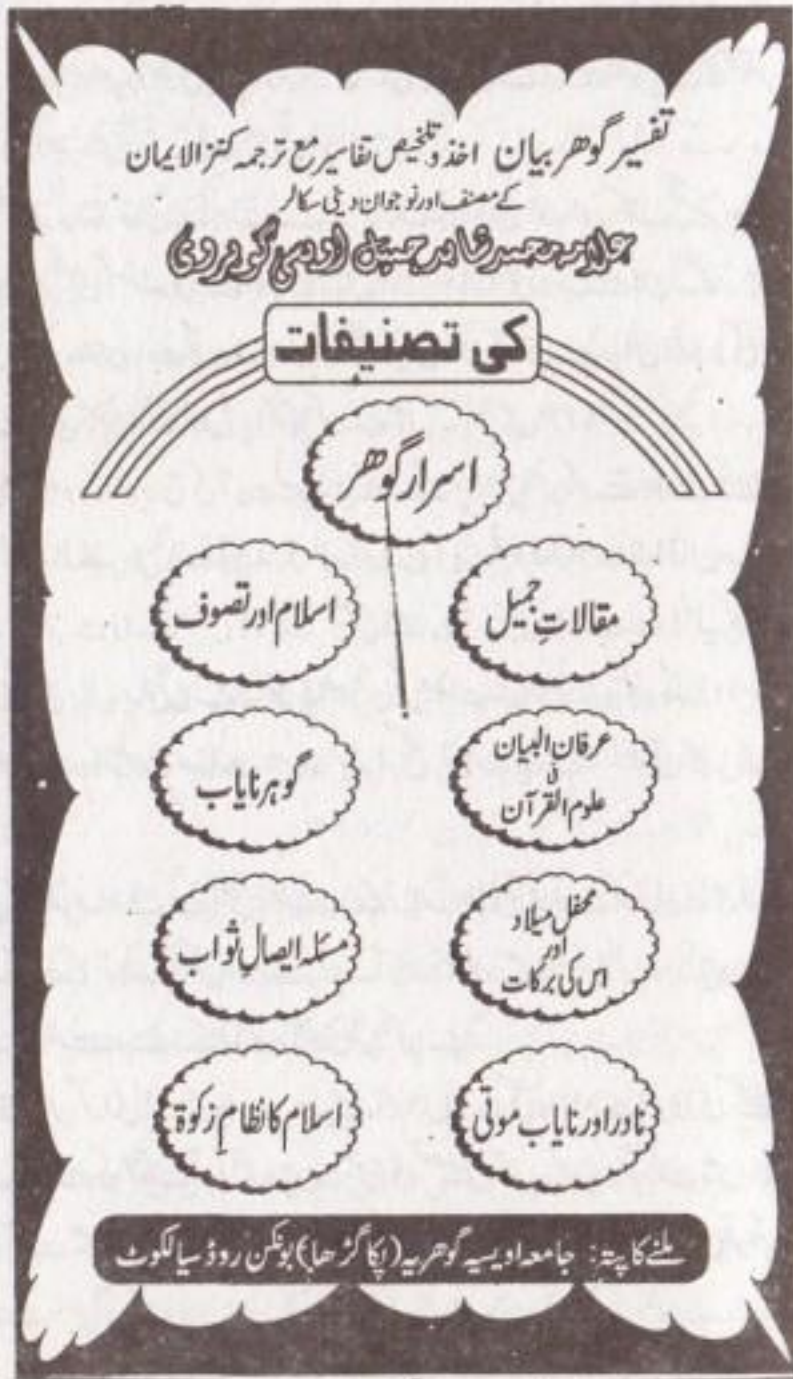 تفسیر گوهر بیان اخذ و تلخیص تفاسیر مع ترجمہ کنز الایمان
کے مصنف اور نوجوان دینی سکالر
علامہ محمد شاہد جمیل اویسی گوہروی
کی تصنیفات
اسرار گوهر
مقالاتِ جمیل
اسلام اور تصوف
عرفان البیان
فی
علوم القرآن
گوہر نایاب
محفل میلاد
اور
اس کی برکات
مسئلہ ایصالِ ثواب
نادر اور نایاب موتی
اسلام کا نظامِ زکوٰۃ
ملنے کا پتہ: جامعہ اویسیہ گوھریہ (پکا گڑھا) بونکن روڈ سیالکوٹ